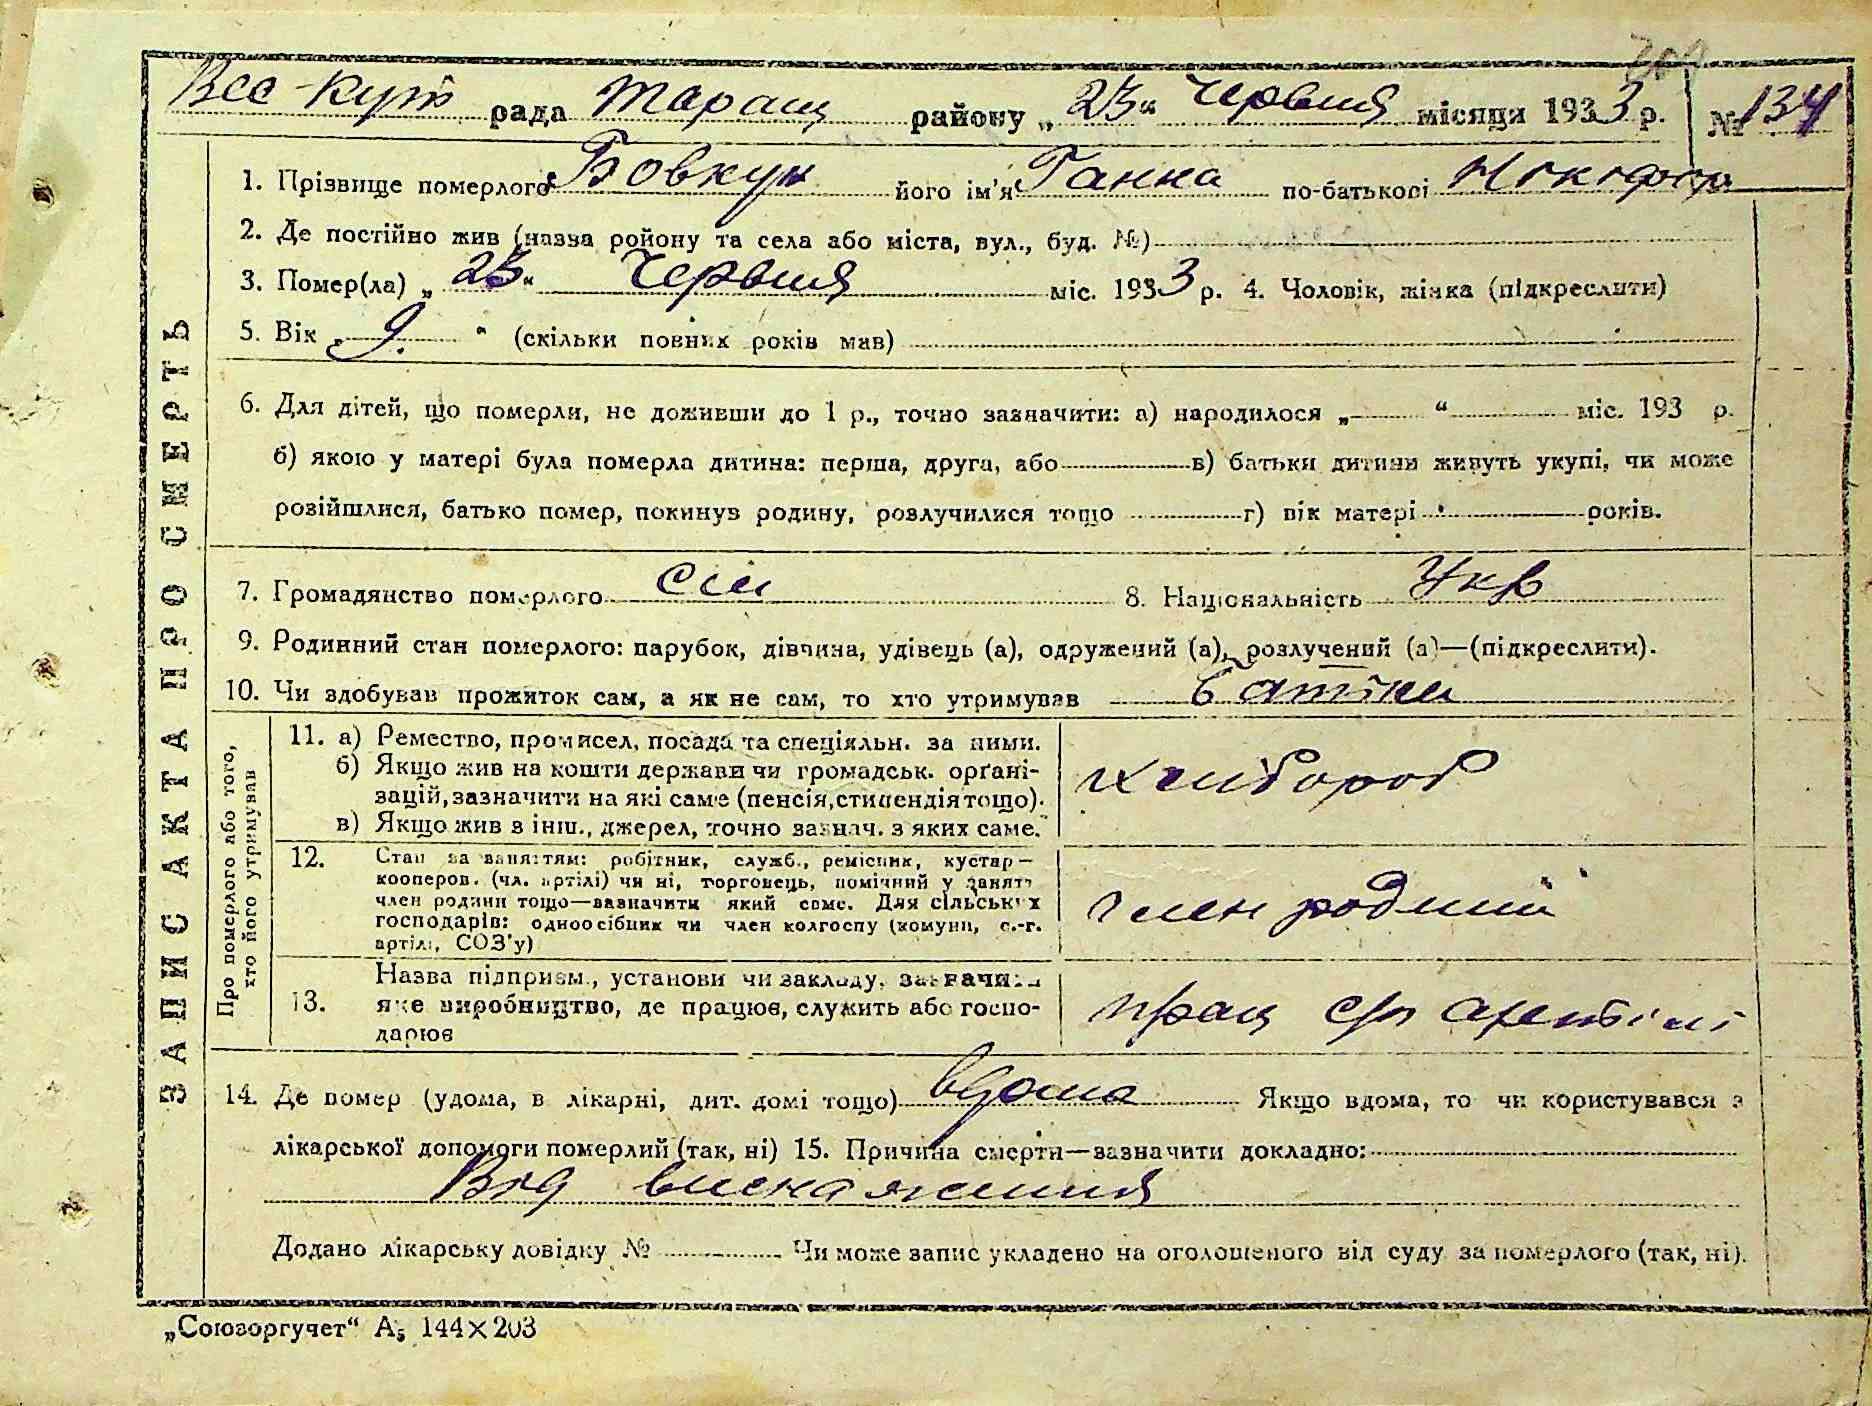 Вес-Кут рада Таращ району „23“ Червня місяця 1933 р. № 134
1. Прізвище померлого Бовкун його ім'я Ганна по-батькові
2. Де постійно жив (назва району та села або міста, вул., буд. №)
3. Помер(ла) „23“ Червня міс. 1933 р. 4. Чоловік, жінка (підкреслити)
5. Вік „9.“ (скільки повних років мав)
6. Для дітей, що померли, не доживши до 1 р., точно зазначити: а) народилося „ “ міс. 193 р.
б) якою у матері була померла дитина: перша, друга, або в) батьки дитини живуть укупі, чи може
розійшлися, батько помер, покинув родину, розлучилися тощо г) вік матері років.
7. Громадянство померлого 8. Національність Укр
9. Родинний стан померлого: парубок, дівчина, удівець (а), одружений (а), розлучений (а)—(підкреслити).
10. Чи здобував прожиток сам, а як не сам, то хто утримував батьки
ЗАПИСАКТА ПРО СМЕРТЬ
Про померлого або того,
хто його утримував
11. а) Ремество, промисел, посада та спеціяльн. за ними.
б) Якщо жив на кошти держави чи громадськ. орґані-
зацій, зазначити на які саме (пенсія, стипендія тощо).
в) Якщо жив з інш., джерел, точно зазнач. з яких саме.
хлібороб
12. Стан за заняттям: робітник, служб., ремісник, кустар—
кооперов. (чл. артілі) чи ні, торговець, помічний у занятт
член родини тощо—зазначити який саме. Для сільських
господарів: одноосібник чи член колгоспу (комуни, с.-г.
артілі, СОЗ'у)
член родини
13. Назва підприєм., установи чи закладу, зазначити
яке виробництво, де працює, служить або госпо-
дарює
прац с/г артілі
14. Де помер (удома, в лікарні, дит. домі тощо) вдома Якщо вдома, то чи користувався з
лікарської допомоги померлий (так, ні) 15. Причина смерти—зазначити докладно:
Від виснаження
Додано лікарську довідку № Чи може запис укладено на оголошеного від суду за померлого (так, ні).
„Союзоргучет“ А₅ 144×203